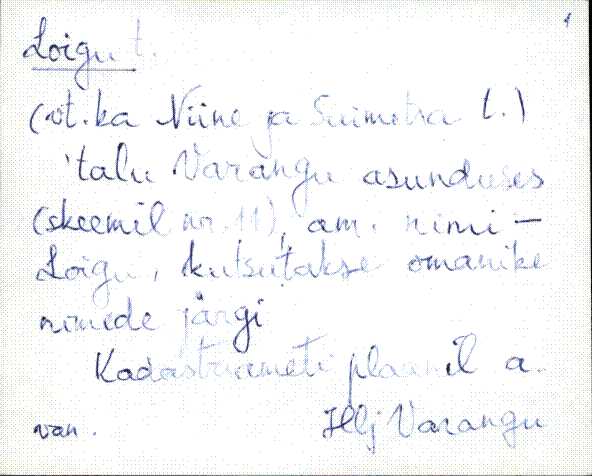 1
Loigu t.
(vt. ka Niine ja Suimetsa t.)
'talu Varangu asunduses
(skeemil nr. 11), am. nimi –
Loigu, kutsutakse omanike
nimede järgi
Kadastriameti plaanil a.
van. Hlj Varangu